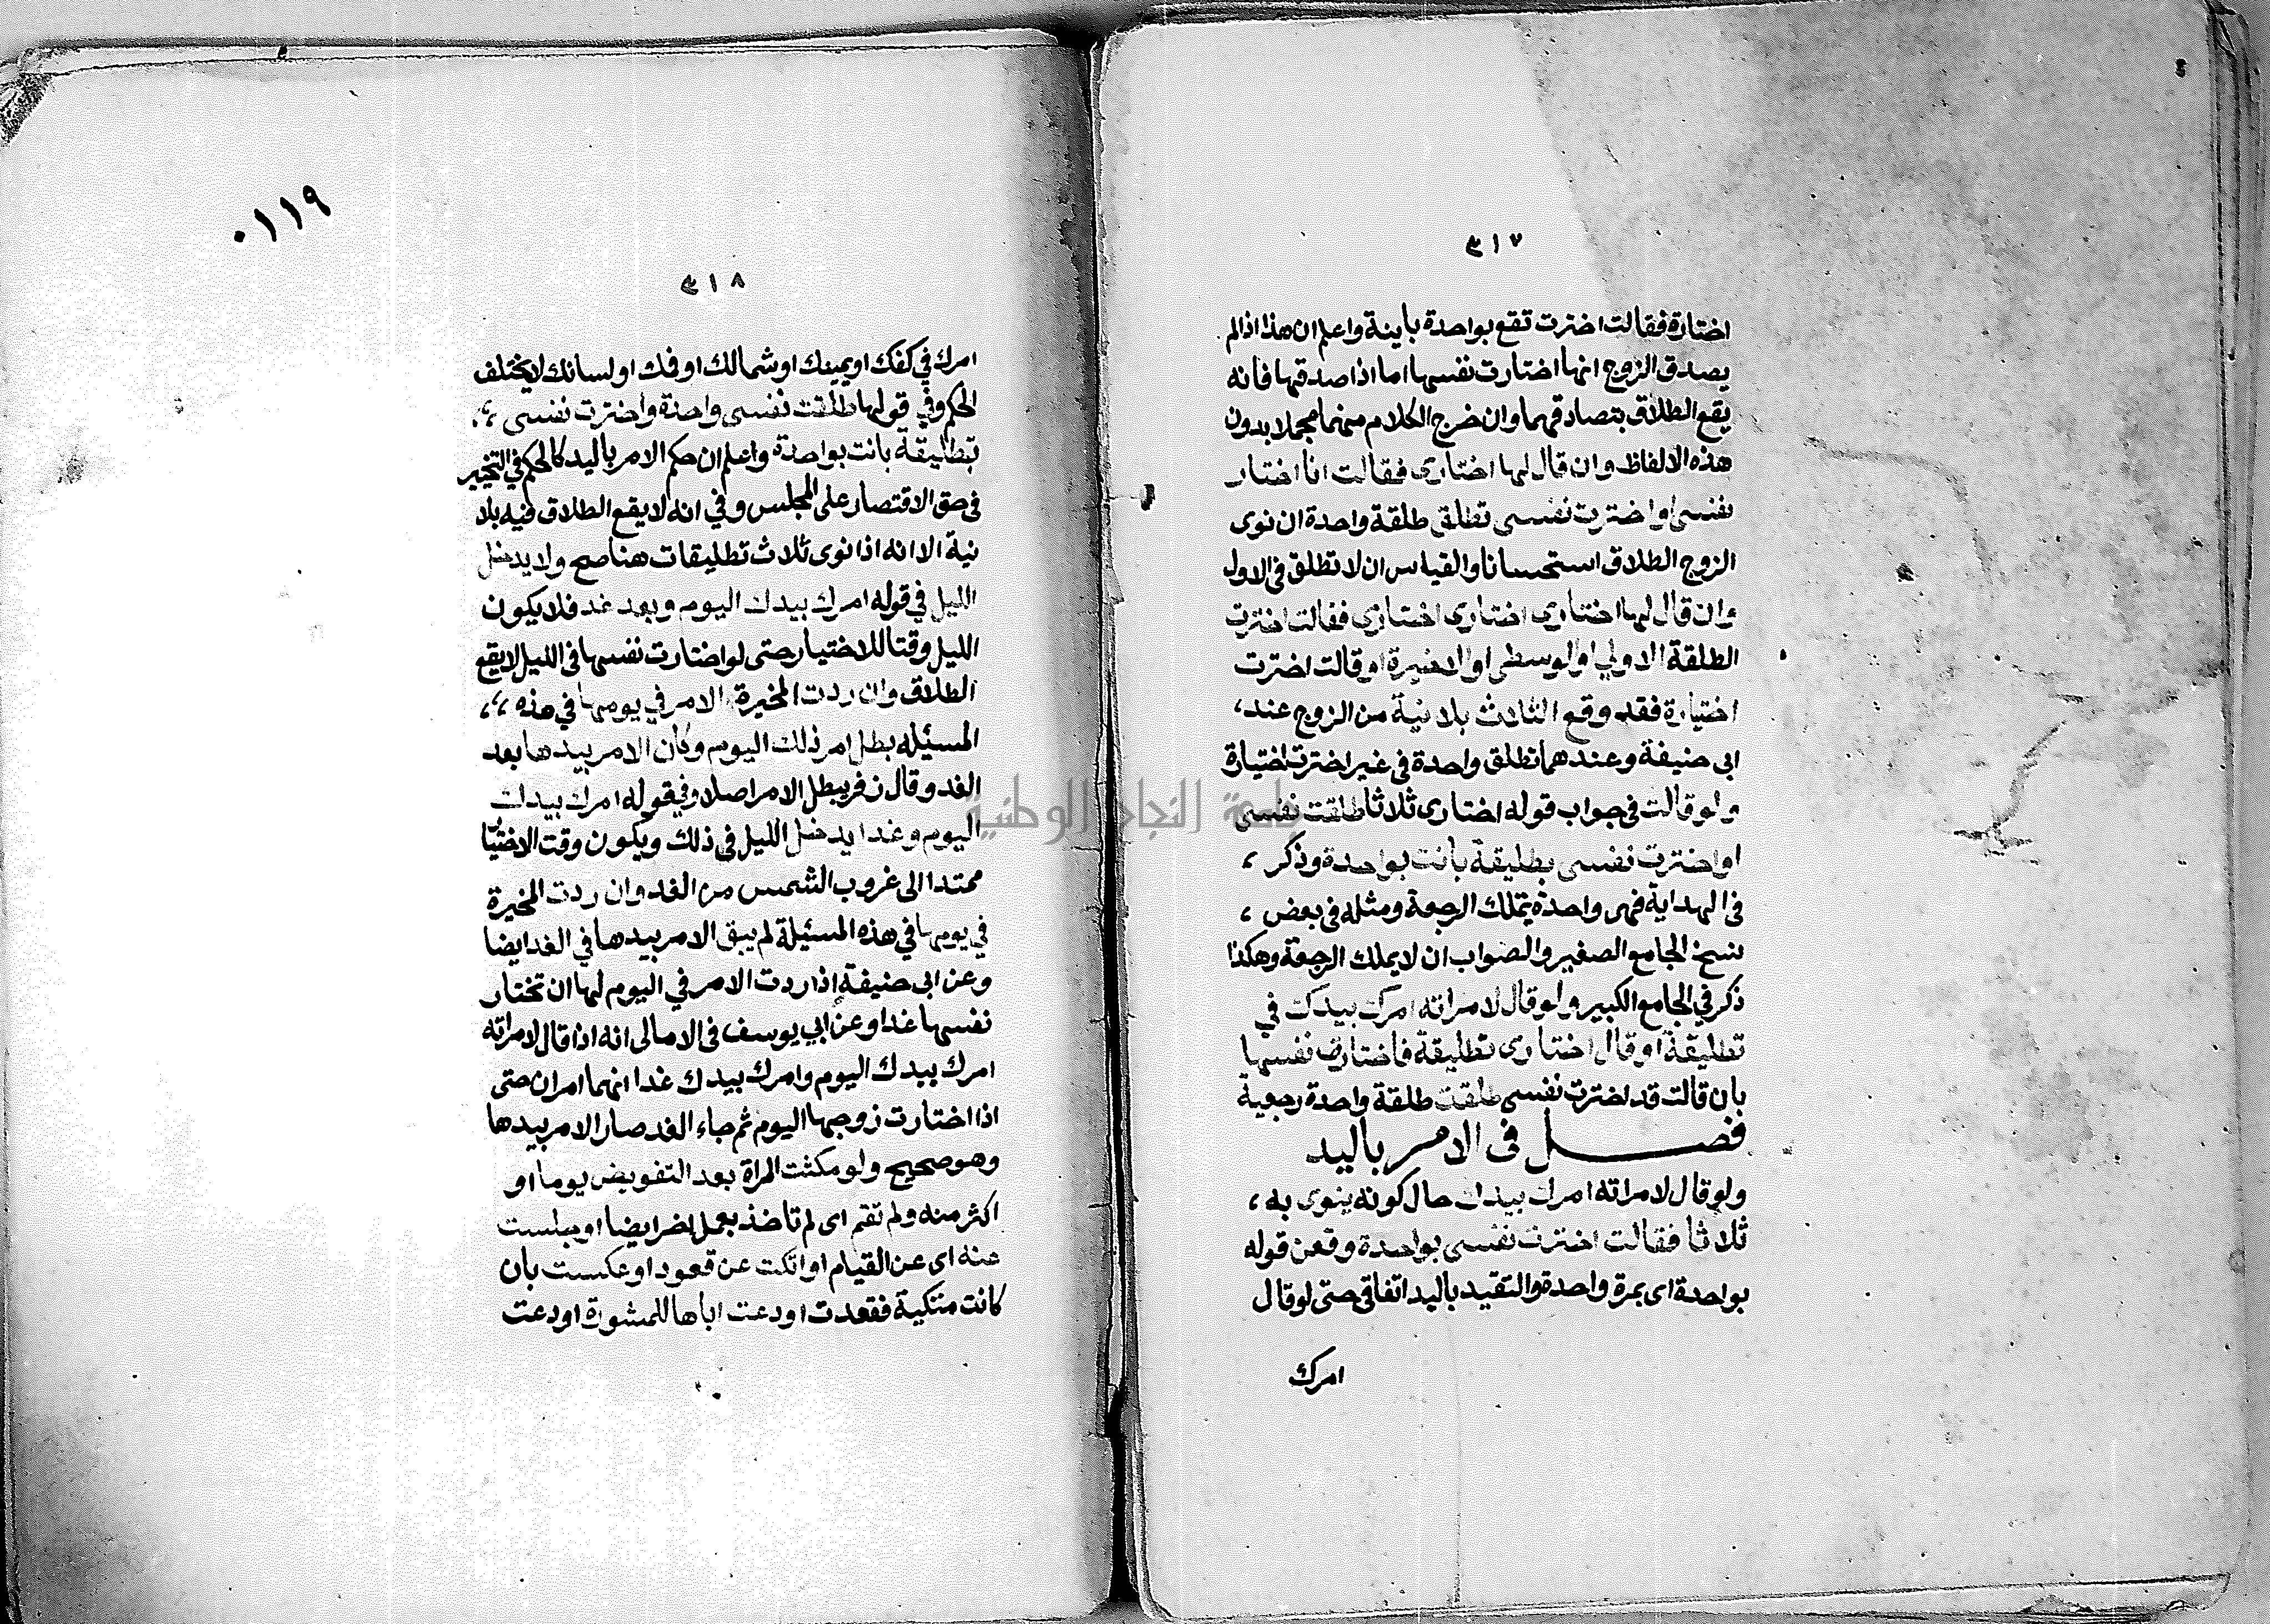 ٣١٧
اختارة فقالت اخترت تقع بواحدة باينة واعلم ان هذا اذا لم
يصدق الزوج انها اختارت نفسها اما اذا صدقها فانه
يقع الطلاق بتصادقهما وان خرج الكلام منهما مجملا بدون
هذه الالفاظ وان قال لها اختارى فقالت انا اختار
نفسى او اخترت نفسى تطلق طلقة واحدة ان نوى
الزوج الطلاق استحسانا والقياس ان لا تطلق فى الاول
وان قال لها اختارى اختارى اختارى فقالت اخترت
الطلقة الاولى او الوسطى او الاخيرة او قالت اخترت
اختيارة فقد وقع الثلاث بلا نية من الزوج عند،
ابى حنيفة وعندهما تطلق واحدة فى غير اخترت اختيارة
ولو قالت فى جواب قوله اختارى ثلاثا طلقت نفسى
او اخترت نفسى بطليقة بانت بواحدة وذكر ،
فى الهداية فهى واحدة يملك الرجعة ومثله فى بعض ،
نسخ الجامع الصغير والصواب ان لا يملك الرجعة وهكذا
ذكر في الجامع الكبير ولو قال لامراته امرك بيدك في
تطليقة او قال اختارى تطليقة فاختارت نفسها
بان قالت قد اخترت نفسى طلقت طلقة واحدة رجعية
فصل فى الامر باليد
ولو قال لامراته امرك بيدك حال كونه ينوى به ،
ثلاثا فقالت اخترت نفسى بواحدة وقعن قوله
بواحدة اى بمرة واحدة والتقيد باليد اتفاقى حتى لو قال
امرك
جامعة النجاح الوطنية
٠١١٩
٣١٨
امرك في كفك او يمينك او شمالك او فك او لسانك لا يختلف
الحكم وفي قولها طلقت نفسى واحدة واخترت نفسى ،،
بتطليقة بانت بواحدة واعلم ان حكم الامر باليد كالحكم في التخيير
فى حق الاقتصار على المجلس وفي انه لا يقع الطلاق فيه بلا
نية الا انه اذا نوى ثلاث تطليقات هنا صح ولا يدخل
الليل في قوله امرك بيدك اليوم وبعد غد فلا يكون
الليل وقتا للاختيار حتى لو اختارت نفسها فى الليل لا يقع
الطلاق وان ردت المخيرة الامر في يومها في هذه ،،
المسئله بطل امر ذلك اليوم وكان الامر بيدها بعد
الغد وقال زفر يبطل الامر اصلا وفي قوله امرك بيدك
اليوم وغدا يدخل الليل فى ذلك ويكون وقت الاختيار
ممتدا الى غروب الشمس من الغد وان ردت المخيرة
في يومها في هذه المسئلة لم يبق الامر بيدها في الغد ايضا
وعن ابى حنيفة اذا ردت الامر في اليوم لها ان تختار
نفسها غدا وعن ابي يوسف فى الامالى انه اذا قال لامراته
امرك بيدك اليوم وامرك بيدك غدا انهما امران حتى
اذا اختارت زوجها اليوم ثم جاء الغد صار الامر بيدها
وهو صحيح ولو مكثت المراة بعد التفويض يوما او
اكثر منه ولم تقم اى لم تاخذ بعمل اخر ايضا او جلست
عنه اى عن القيام او اتكت عن قعود او عكست بان
كانت متكية فقعدت او دعت اباها للمشورة او دعت